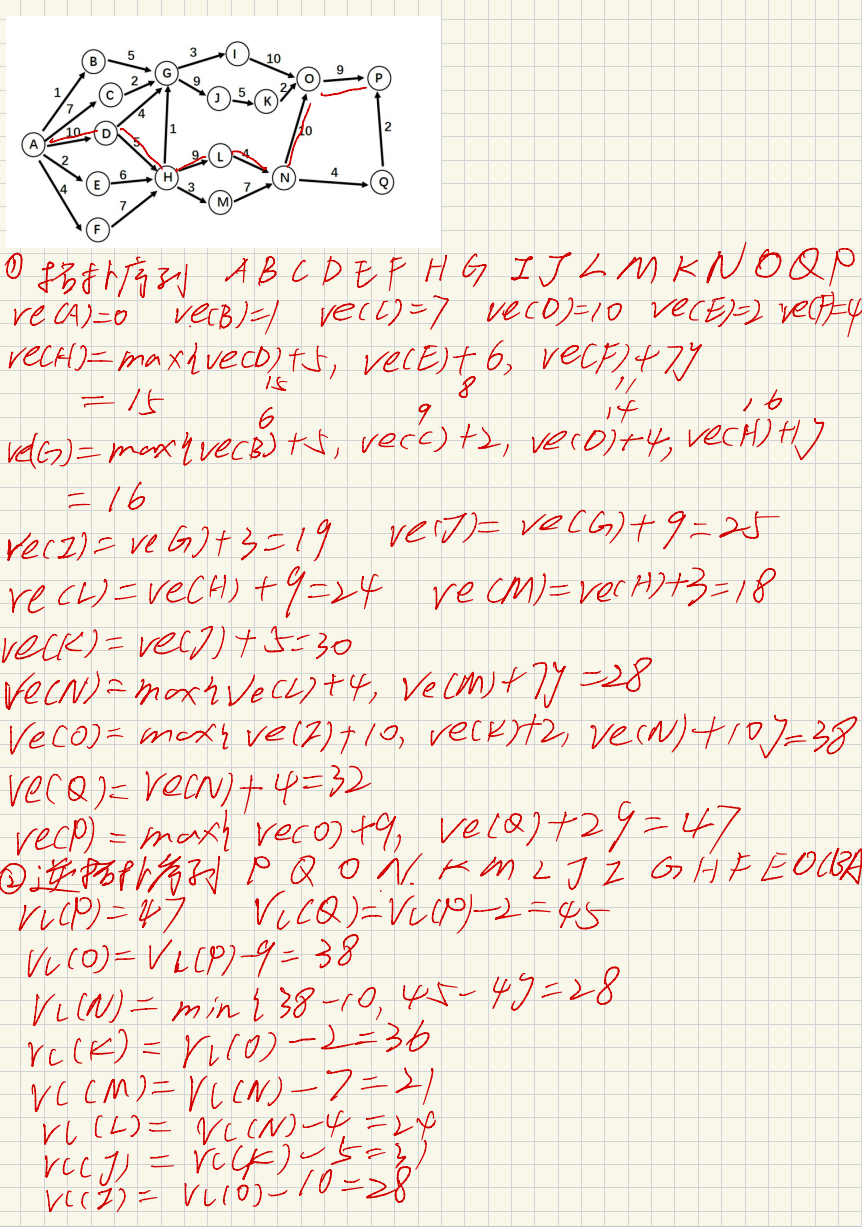 B 5 G 3 I 10 O 9 P
1 7 C 2 4 9 J 5 K 2
A 10 D 5 1 9 L 4 10 2
2 E 6 H 3 M 7 N 4 Q
4 F 7
① 拓扑序列 A B C D E F H G I J L M K N O Q P
ve(A)=0 ve(B)=1 ve(C)=7 ve(D)=10 ve(E)=2 ve(F)=4
ve(H)=max{ve(D)+5, ve(E)+6, ve(F)+7}
15 8 11
=15
6 9 14 16
ve(G)=max{ve(B)+5, ve(C)+2, ve(D)+4, ve(H)+1}
=16
ve(I)=ve(G)+3=19 ve(J)=ve(G)+9=25
ve(L)=ve(H)+9=24 ve(M)=ve(H)+3=18
ve(K)=ve(J)+5=30
ve(N)=max{ve(L)+4, ve(M)+7}=28
ve(O)=max{ve(I)+10, ve(K)+2, ve(N)+10}=38
ve(Q)=ve(N)+4=32
ve(P)=max{ve(O)+9, ve(Q)+2}=47
②逆拓扑序列 P Q O N K M L J I G H F E D C B A
vl(P)=47 vl(Q)=vl(P)-2=45
vl(O)=vl(P)-9=38
vl(N)=min{38-10, 45-4}=28
vl(K)=vl(O)-2=36
vl(M)=vl(N)-7=21
vl(L)=vl(N)-4=24
vl(J)=vl(K)-5=31
vl(I)=vl(O)-10=28